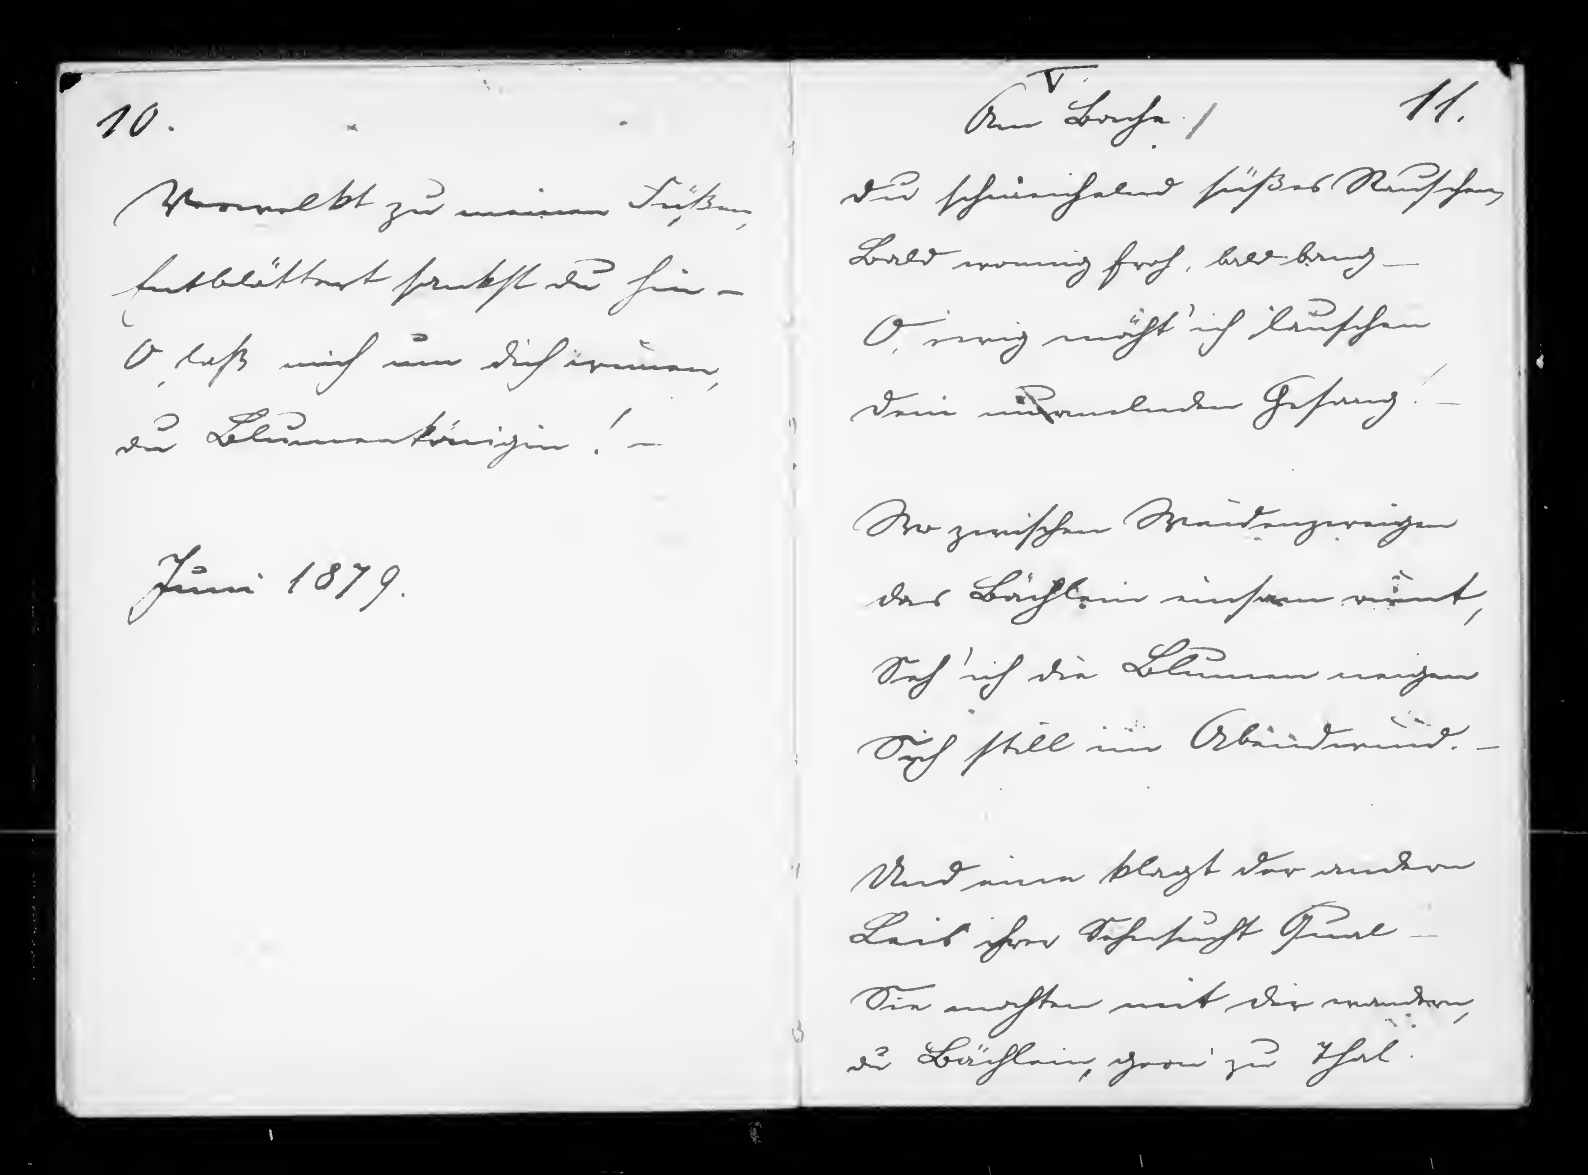 10.
Verwelkt zu meinen Füßen,
Entblättert sankst du hin –
O, laß mich um dich weinen,
du Blumenkönigin! –
Juni 1879.
V.
Am Bache.
11.
Du schmeichelnd süßes Rauschen,
Bald wonnig froh, bald bang –
O, ewig möcht' ich lauschen
dem murmelnden Gesang! –
Wo zwischen Weidenzweigen
das Bächlein einsam rinnt,
Seh' ich die Blumen neigen
Sich still im Abendwind. –
Und eine klagt der andern
Leis ihrer Sehnsucht Qual –
Sie mochten mit dir wandern,
du Bächlein, gern zu Thal.